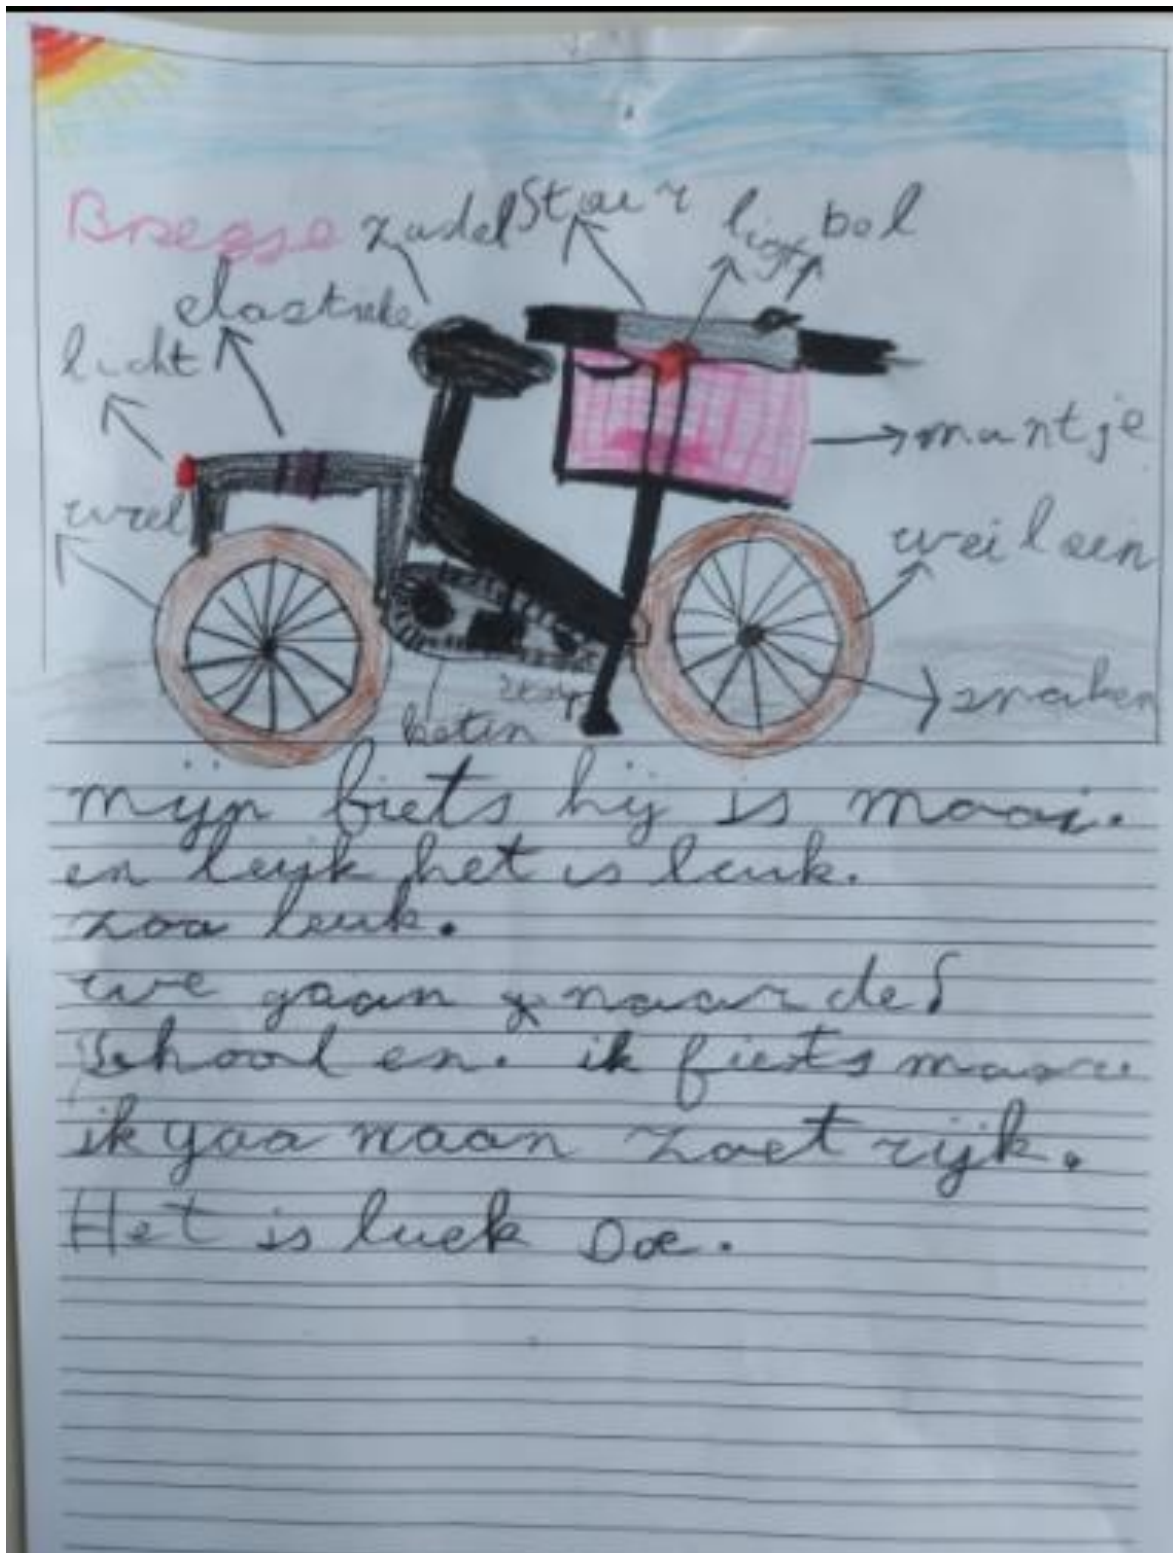 zadel Staur bel
elastieke
licht
mantje
wiel
weilen
spaken
ketin
mijn fiets hij is mooi.
en leijk het is leuk.
zoo leuk.
we gaan naar de
school en. ik fiets maar
ik gaa naan zoet rijk.
Het is luek Doe.